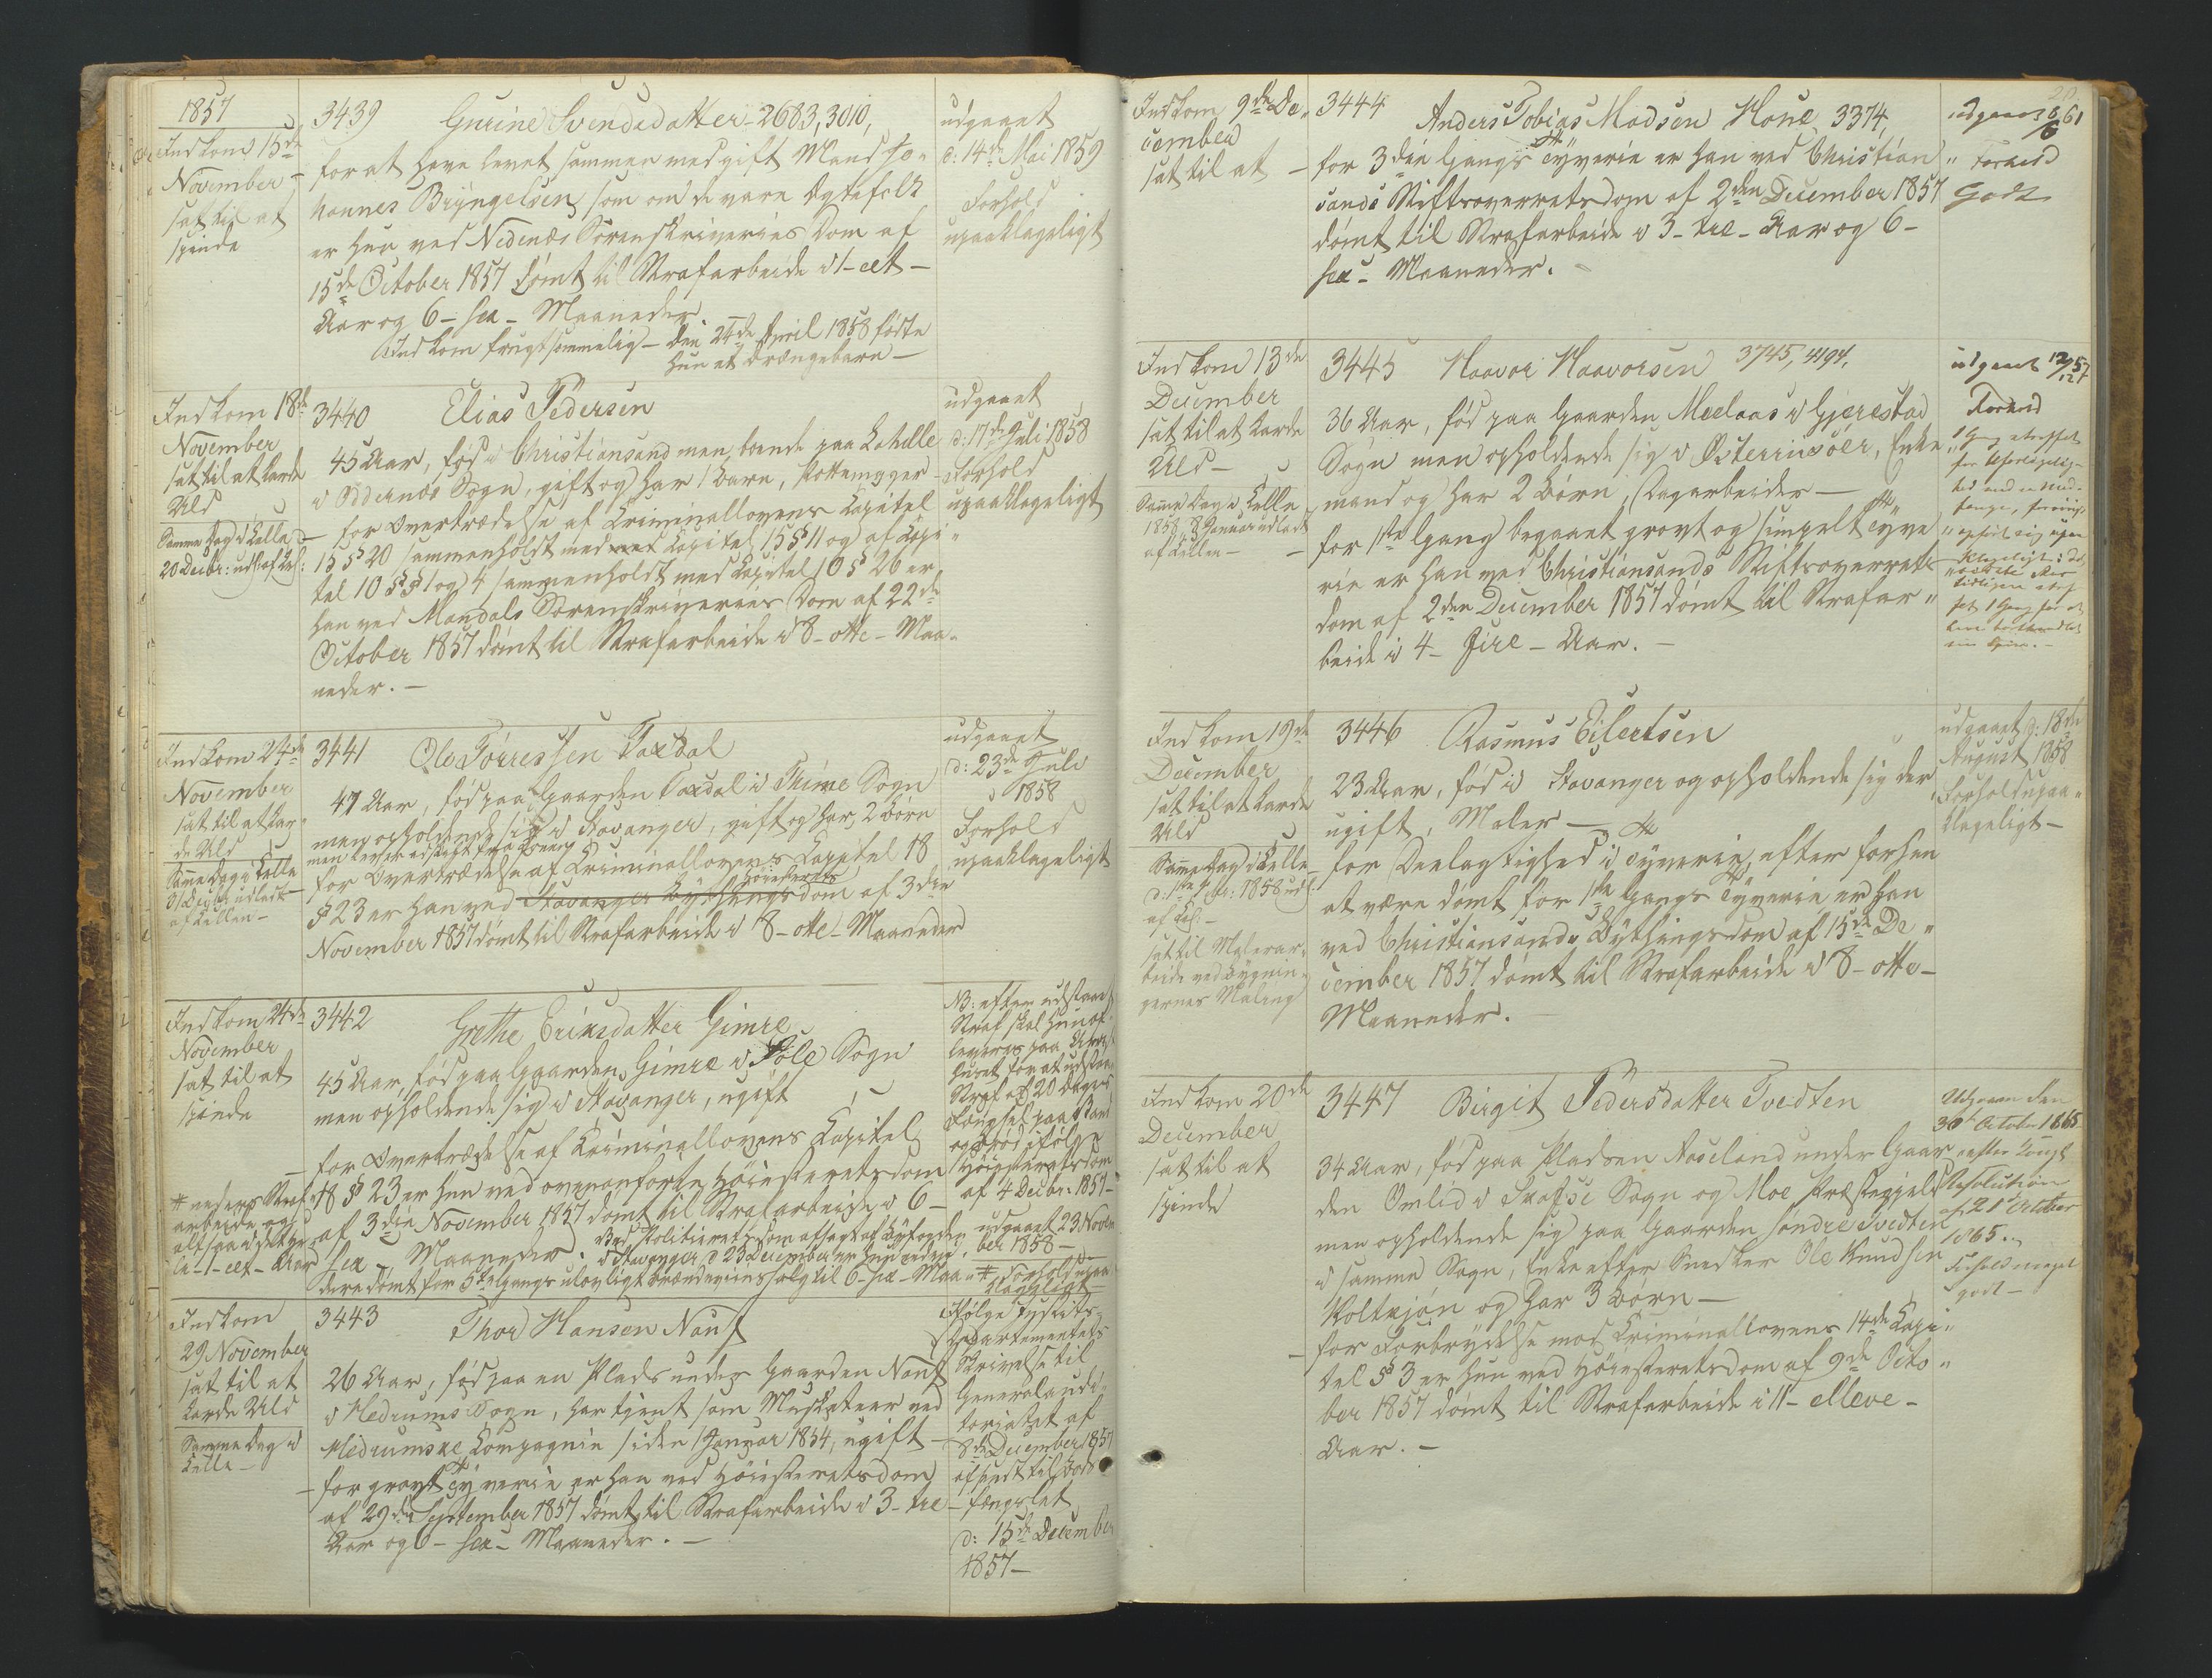 1857
Indkom 15de
November
sat til at
spinde
3439 Gurine Svendsdatter 2683, 3010,
for at have levet sammen med gift Mand Jo-
hannes Bryngelsen, som om de vare Ægtefolk
er hun ved Nedenæs Sorenskriveries Dom af
15de October 1857 dømt til Strafarbeide i 1 - eet -
Aar og 6 - sex - Maaneder.
Indkom frugtsommelig - den 24de April 1858 fødte
hun et Drengebarn -
udgaaet
d: 14de Mai 1859
Forhold
upaaklageligt
Indkom 18de
November
sat til at karde
Uld
Samme Dag i Celle
20 Decbr: udl: af Cel:
3440 Elias Pedersen
45 Aar, fød i Christiansand men boende paa
i Oddernæs Sogn, gift og har 1 Barn,
for Overtrædelse af Criminallovens Capitel
15 § 20 sammenholdt med Capitel 15 § 11 og af Capi-
tel 10 §§ 1 og 4 sammenholdt med Capitel 10 § 26 er
han ved Mandals Sorenskriveries Dom af 22de
October 1857 dømt til Strafarbeide i 8 - otte - Maa-
neder. -
udgaaet
d: 17de Juli 1858
Forhold
upaaklageligt
Indkom 24de
November
sat til at kar-
de Uld
Samme Dag i Celle
udladt
af Cellen -
3441 Ole Torressen Taxdal
47 Aar, fød paa Gaarden Taxdal i Thime Sogn
men opholdende sig i Stavanger, gift og har 2 Børn
men lever adskilt fra Konen
for Overtrædelse af Criminallovens Capitel 18
§ 23 er han ved Stavanger Bythings Høiesterets dom af 3die
November 1857 dømt til Strafarbeide i 8 - otte - Maaneder
udgaaet
d: 23de Juli
1858
Forhold
upaaklageligt
Indkom 24de
November
sat til at
spinde
3442 Grethe Eriksdatter Gimre
45 Aar, fød paa Gaarden Gimre i Sole Sogn
men opholdende sig i Stavanger, ugift
for Overtrædelse af Criminallovens Capitel
18 § 23 er hun ved ovenanførte Høiesteretsdom
af 3die November 1857 dømt til Strafarbeide i 6 -
sex - Maaneder. Ved Politiretsdom afsagt af Byfogden
i Stavanger d 23 December er hun endvi-
dere dømt for 5te Gangs ulovligt Brændeviinssalg til 6 - sex - Maa-#
# neders Straf-
arbeide og
altsaa i det he-
le - 1 - eet - Aar
NB: efter udstaaet
Straf skal hun af-
leveres paa
huset for at udstaa
Straf af 20 Dages
Fængsel paa Vand
og Brød ifølge
Høiesteretsdom
af 4 Decbr. 1857 -
udgaaet 23 Novem
ber 1858 -
Forhold upaa
klageligt
Indkom
29 November
sat til at
karde Uld
Samme Dag i
Celle -
3443 Thor Hansen Nanf
26 Aar, fød paa en Plads under Gaarden Nanf
i Hedrums Sogn, har tjent som Musketeer ved
Hedrumske Compagnie siden 1 Januar 1854, ugift -
for grovt Tyverie er han ved Høiesteretsdom
af 29de September 1857 dømt til Strafarbeide i 3 - tre -
Aar og 6 - sex - Maaneder. -
Ifølge Justits-
Departementets
Skrivelse til
Generalaudi-
toriatet af
8de December 1857
afsendt til Bods
fængslet
d: 15de December
1857 -
Indkom 9de De-
cember
sat til at
3444 Anders Tobias Madsen Hone 3374,
for 3die Gangs Tyverie er han ved Christian
sands Stiftsoverretsdom af 2den December 1857
dømt til Strafarbeide i 3 - tre - Aar og 6 -
sex - Maaneder.
udgaaet 8/6 61
Forhold
Godt
Indkom 13de
December
sat til at karde
Uld -
Samme Dag i Celle
1858, 8 Januar udladt
af Cellen -
3445 Haavor Haavorsen 3745, 4194,
36 Aar, fød paa Gaarden Meelaas i Gjerestad
Sogn men opholdende sig i Østerriisøer, Enke
mand og har 2 Børn, Dagarbeider -
for 1ste Gang begaaet grovt og simpelt Tyve
rie er han ved Christiansands Stiftsoverrets
dom af 2den December 1857 dømt til Strafar-
beide i 4 - fire - Aar. -
udgaaet
Forhold
1 Gang straffet
Indkom 19de
December
sat til at karde
Uld
Samme Dag i Celle
1858 udl
af Cel: -
sat til Malerar-
beide ved Bygnin-
gernes Maling
3446 Rasmus Eilertsen
23 Aar, fød i Stavanger og opholdende sig der
ugift, Maler -
for Deelagtighed i Tyverie, efter forhen
at være dømt for 1ste Gangs Tyverie er han
ved Christiansands Bythingsdom af 15de De-
cember 1857 dømt til Strafarbeide i 8 - otte -
Maaneder.
udgaaet d: 18de
August 1858
Forhold upaa-
klageligt -
Indkom 20de
December
sat til at
spinde
3447 Birgit Pedersdatter Tvedten
34 Aar, fød paa Pladsen Roseland under Gaar
den Omlid i Skafse Sogn og Moe Præstegjeld
men opholdende sig paa Gaarden søndre Tvedten
i samme Sogn, Enke efter Snedker Ole Knudsen
Holtejøn og har 3 Børn -
for Forbrydelse mod Criminallovens 14de Capi-
tel § 3 er hun ved Høiesteretsdom af 9de Octo-
ber 1857 dømt til Strafarbeide i 11 - elleve -
Aar. -
Udgaaet den
30te October 1865
efter Kongl
Resolution
af 21de October
1865.
Forhold meget
godt -